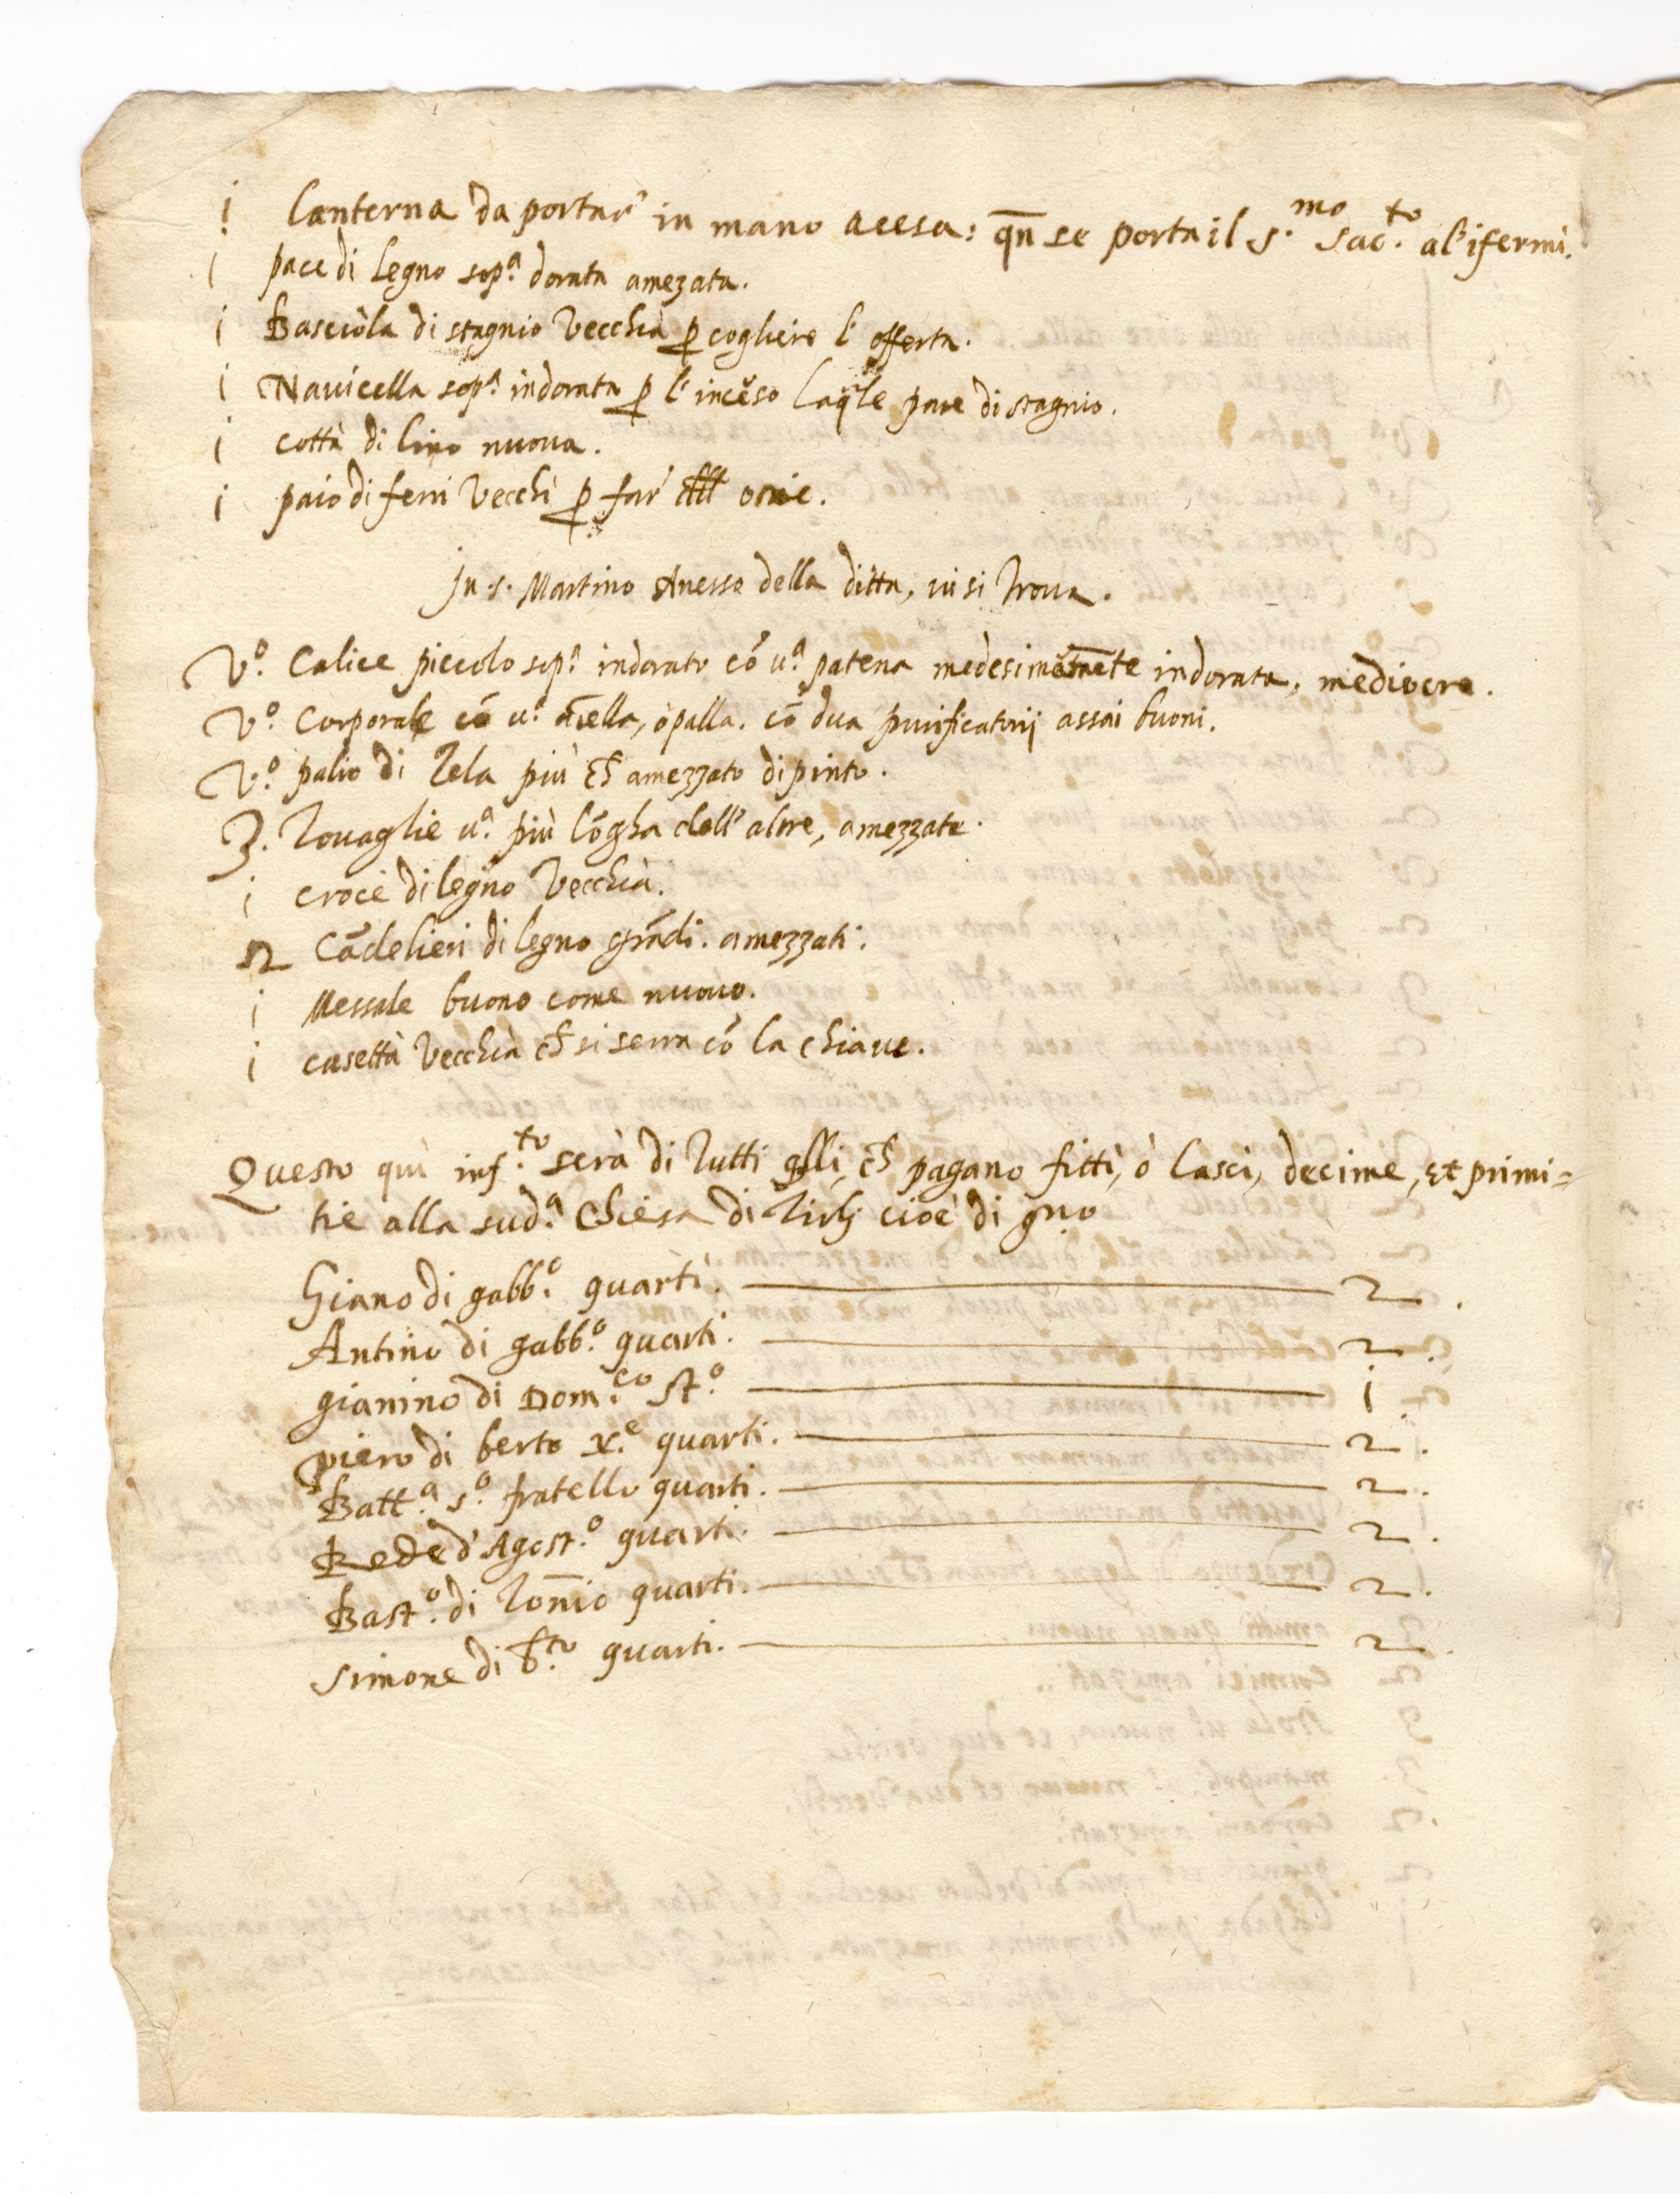 i Lanterna da portar' in mano acesa: qn̄ se porta il s.mo sac.to al'ifermi.
i pace di legno sop.a dorata amezata.
i Basciola di stagnio vecchia p cogliere l'offerta.
i Navicella sop.a indorata p l'incẽso laq̃le pare di stagnio.
i cotta di lino nuova.
i paio di ferri vecchi p far' ostie.
In s. Martino Anesso della ditta, ivi si trova.
V.o Calice piccolo sop.a indorato cõ u.a patena medesimamẽte indorata, mediocre.
V.o Corporale cõ u.a aĩella, ò palla. cõ dua purificatorij assai buoni.
V.o palio di Tela più ch' amezzato dipinto.
3. Tovaglie u.a più lõgha dell'altre, amezzate.
i croce di legno vecchia.
2 Cãdelieri di legno grãdi. amezzati.
i Messale buono come nuovo.
i casetta vecchia ch' si serra cõ la chiave.
Questo quì inf.to serà di tutti q̃lli, ch' pagano fitti, ò lasci, decime, et primi=
tie alla sud.a Chiesa di Tirlj cioè di gno
Giano di gabb.o quarti. 2.
Antino di gabb.o quarti. 2.
gianino di Dom.co st.o i
piero di berto x.e quarti. 2.
Batt.a s.o fratello quarti. 2.
Rede d'Agost.o quarti. 2.
Bast.o di Tonĩo quarti. 2.
Simone di b.to quarti. 2.